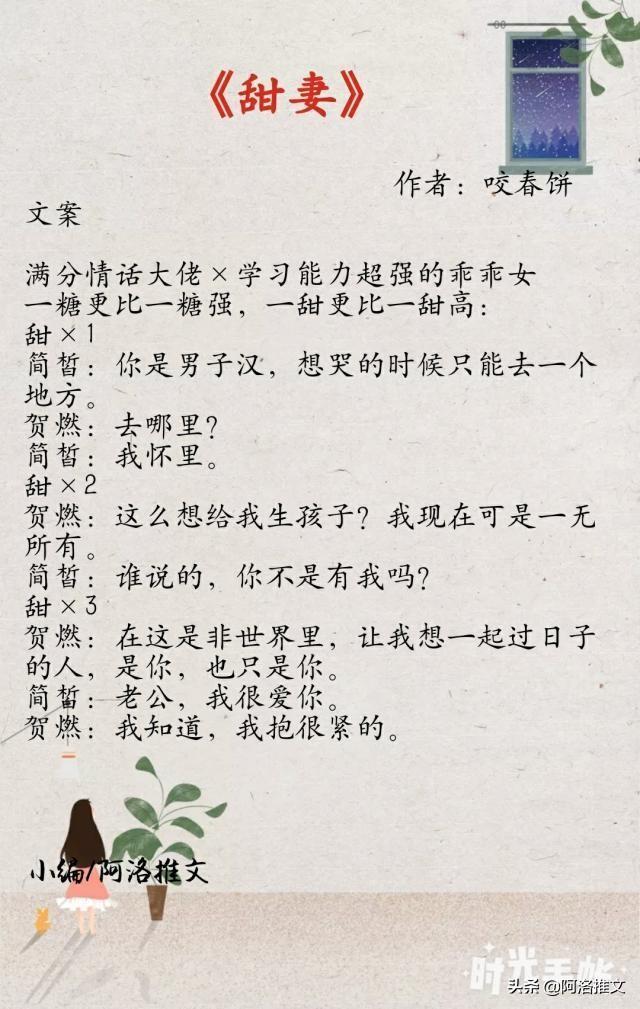 《甜妻》
作者：咬春饼
文案
满分情话大佬×学习能力超强的乖乖女
一糖更比一糖强，一甜更比一甜高：
甜×1
简皙：你是男子汉，想哭的时候只能去一个
地方。
贺燃：去哪里？
简皙：我怀里。
甜×2
贺燃：这么想给我生孩子？我现在可是一无
所有。
简皙：谁说的，你不是有我吗？
甜×3
贺燃：在这是非世界里，让我想一起过日子
的人，是你，也只是你。
简皙：老公，我很爱你。
贺燃：我知道，我抱很紧的。
小编/阿洛推文
时光手帐
头条 @阿洛推文